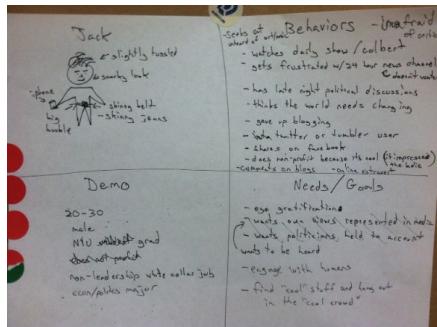 Jack
slightly tussled
snarky look
phone
big
skinny belt
skinny jeans
Behaviors
- afraid
of
- Seeks out
- watches daily show / colbert
- gets frustrated w/ 24 hour news channel
doesn't watch
- has late night political discussions
- thinks the world needs changing
- gave up blogging
- twitter or tumbler user
- shares on facebook
- does non-profit because its cool (it impresses
the ladies
- comments on blogs - online extrovert
Demo
20-30
male
NYU grad
non-leadership white collar job
econ/politics major
Needs/Goals
- ego gratification
- wants own views represented in media
- wants politicians held to account
wants to be heard
- engage with humans
- find "cool" stuff and hang out
in the "cool crowd"